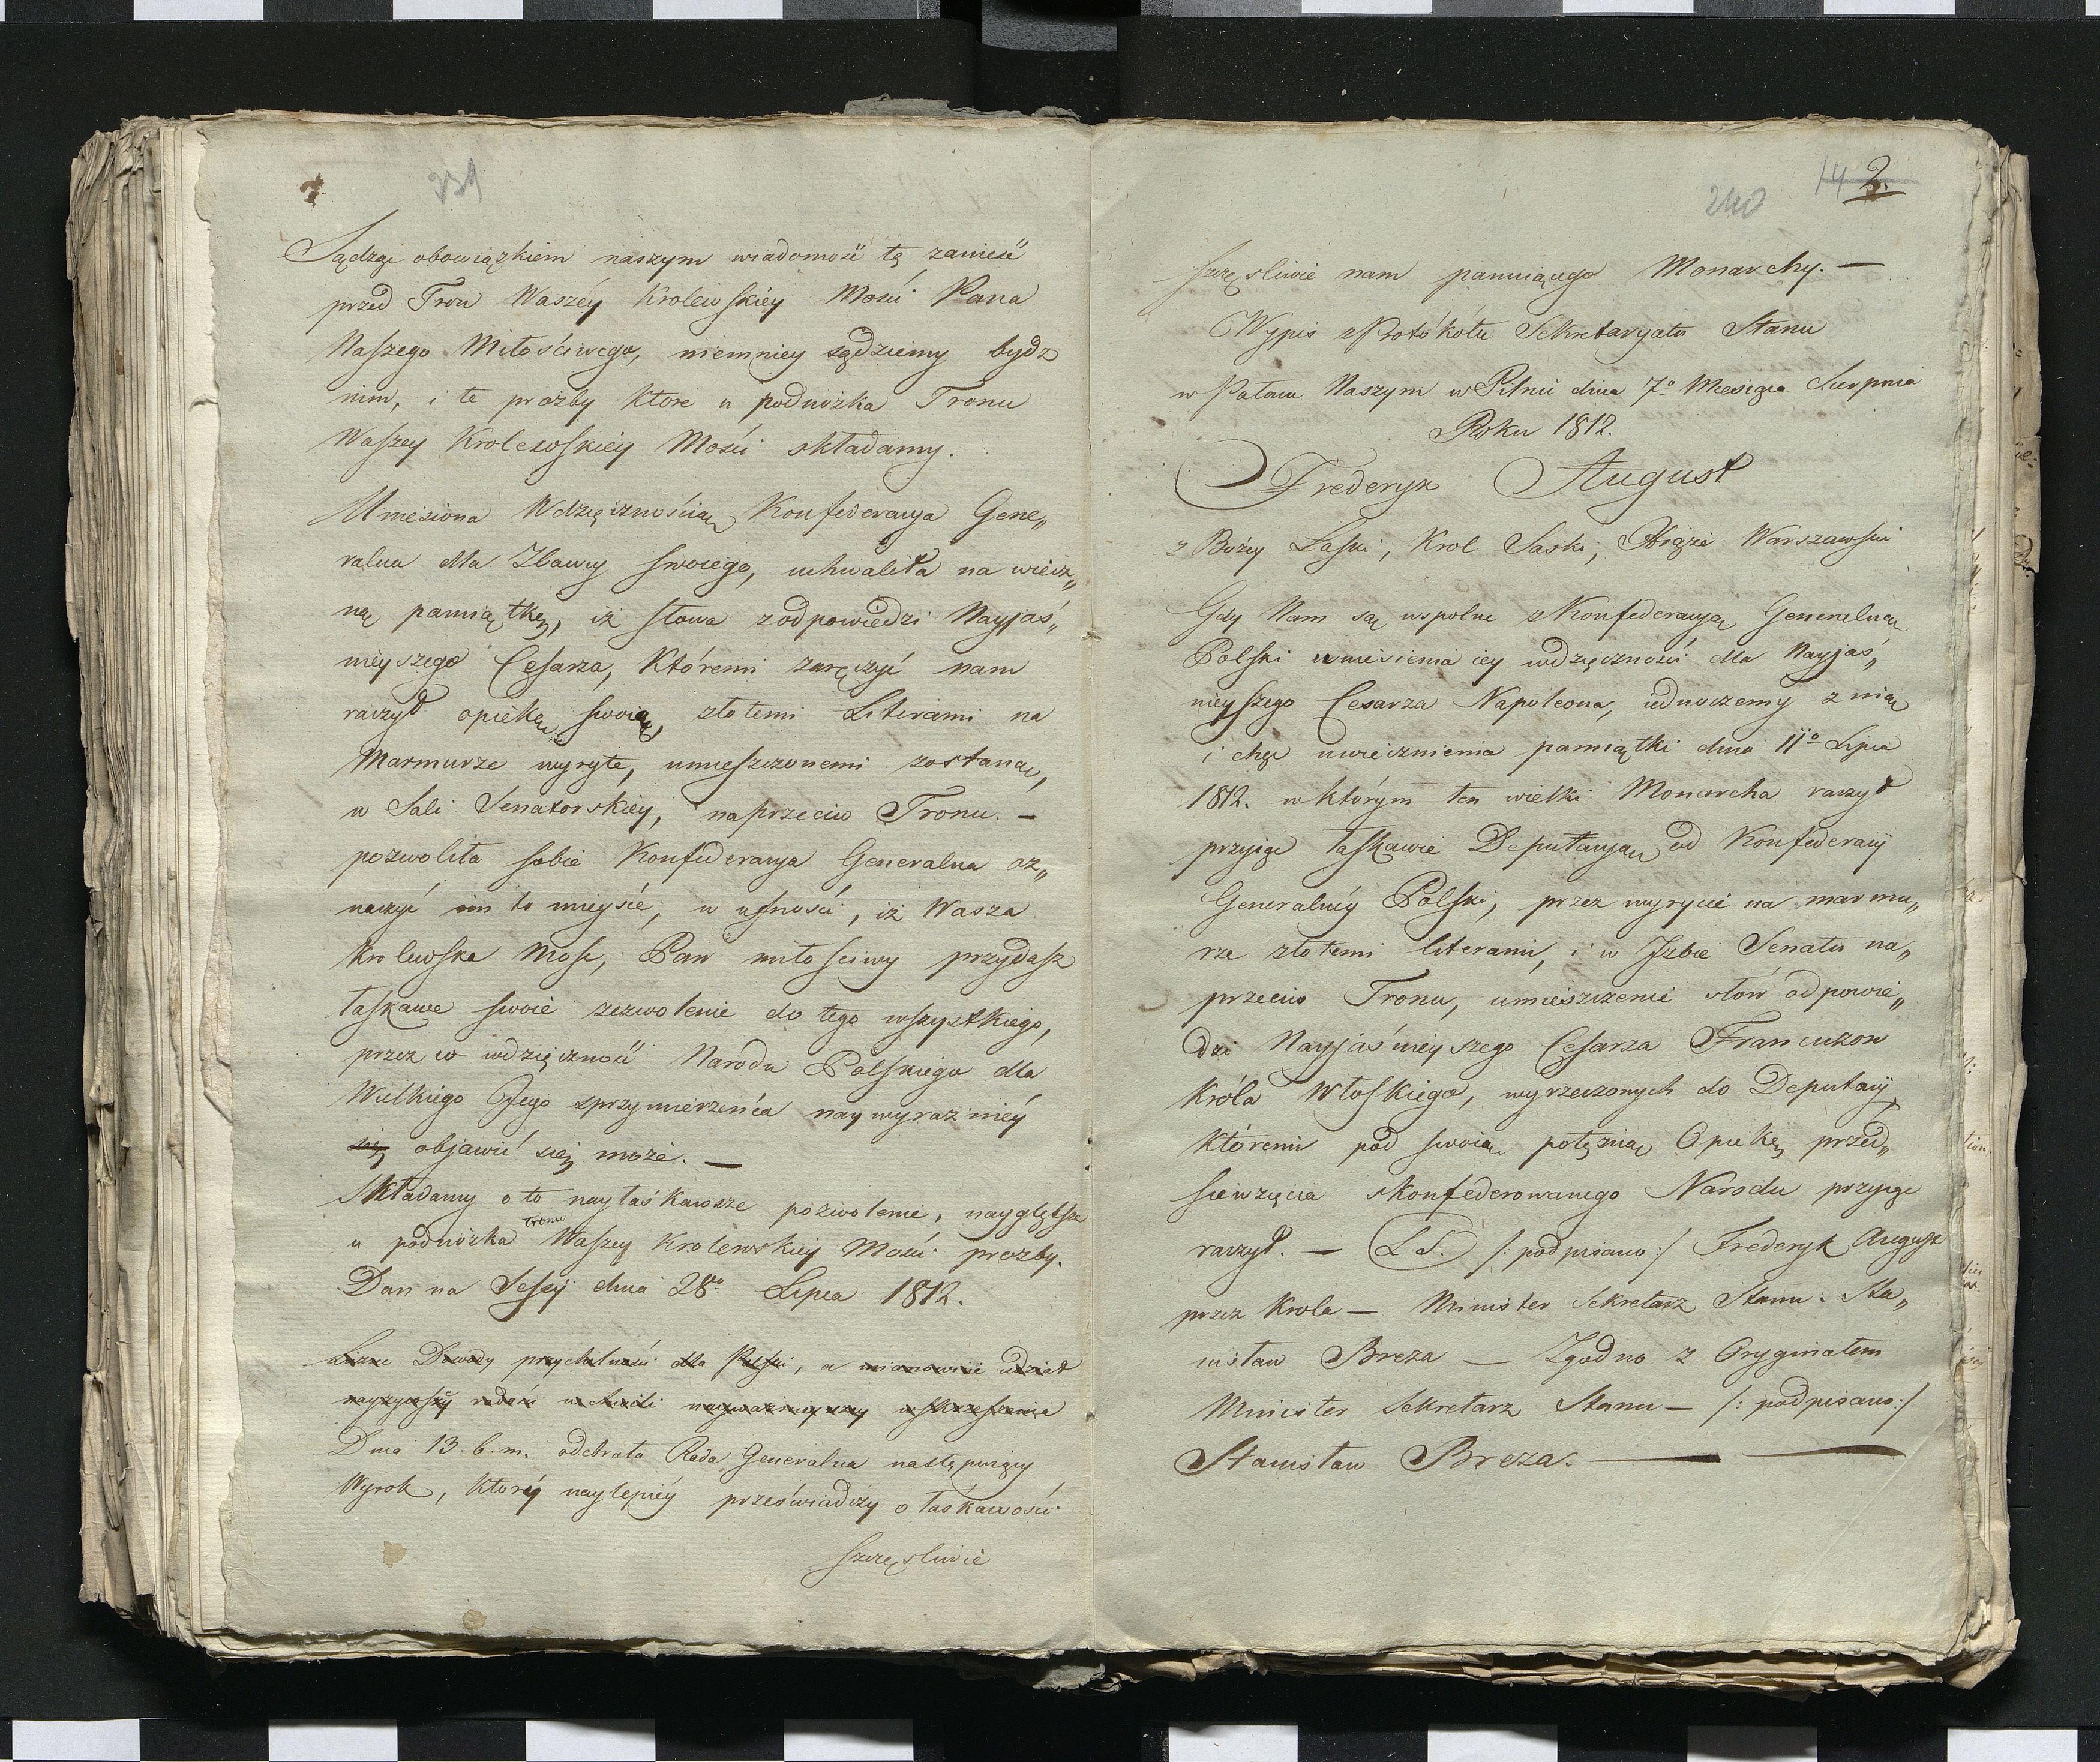 239
Sądząc obowiązkiem naszym wiadomość tę zanieść
przed Tron Waszéy Krolewskiéy Mości Pana
Naszego Miłościwego, niemniéy sądziemy bydz
nim, i te proźby ktore u podnóżka Tronu
Waszey Krolewskiéy Mości składamy.
Uniesiona Wdzięcznością Konfederacya Gene„
ralna dla Zbawcy swoiego, uchwaliła na wiecz„
ną pamiątkę, iż słowa z odpowiedzi Nayjaś„
nieyszego Cesarza, Któremi zaręczyć nam
raczył opiekę swoią, złotemi Literami na
Marmurze wyryte, umieszczonemi zostaną,
w Sali Senatorskiéy, naprzeciw Tronu. —
pozwoliła sobie Konfederacya Generalna oz„
naczyć im to mieysce, w ufności, iż Wasza
Krolewska Mość, Pan miłościwy przydasz
łaskawe swoie zezwolenie do tego wszystkiego,
przez co wdzięczność Narodu Polskiego dla
Wielkiego Jego sprzymierzeńca naywyrazniéy
się objawić się może. —
Składamy o to nayłaskawsze pozwolenie, nayglębsze
u podnóżka Tronu Waszey Krolewskiéy Mości prozby.
Dan na Sessyi dnia 28go Lipca 1812.
Liczne Dowody przychylności dla Polski, a mianowicie udział
nayżywszy w chwili nayważnieyszey wskrzeszenia
Dnia 13. b. m. odebrała Rada Generalna następuiący
Wyrok, który naylepiéy przeświadczy o łaskawości
szczęśliwie
240 14 2.
szczęśliwie nam panuiącego Monarchy. —
Wypis z Protókółu Sekretaryatu Stanu
w Pałacu Naszym w Pilnic dnia 7o Miesiąca Sierpnia
Roku 1812.
Fréderyk August
z Bożéy Łaski, Krol Saski, Xiąże Warszawski
Gdy Nam są wspolne z Konfederacyą Generalną
Polski uniesienia iey wdzięczności dla Nayjaś„
nieyszego Cesarza Napoleona, iednoczemy z nią
i chęć uwiecznienia pamiątki dnia 11o Lipca
1812. w którym ten wielki Monarcha raczył
przyiąć łaskawie Deputacyą od Konfederacyi
Generalnéy Polski, przez wyrycie na marmu„
rze złotemi literami, i w Izbie Senatu na„
przeciw Tronu, umieszczenie słów odpowie„
dzi Nayjaśnieyszego Cesarza Francuzow
Króla Włoskiego, wyrzeczonych do Deputacyi,
któremi pod swoią potężną Opiekę przed„
sięwzięcia skonfederowanego Narodu przyiąć
raczył. — (L S.) /: podpisano :/ Fréderyk August
przez Krola — Minister Sekretarz Stanu. Sta„
nisław Breza — Zgodno z Oryginałem
Minister Sekretarz Stanu — /: podpisano :/
Stanisław Breza. —